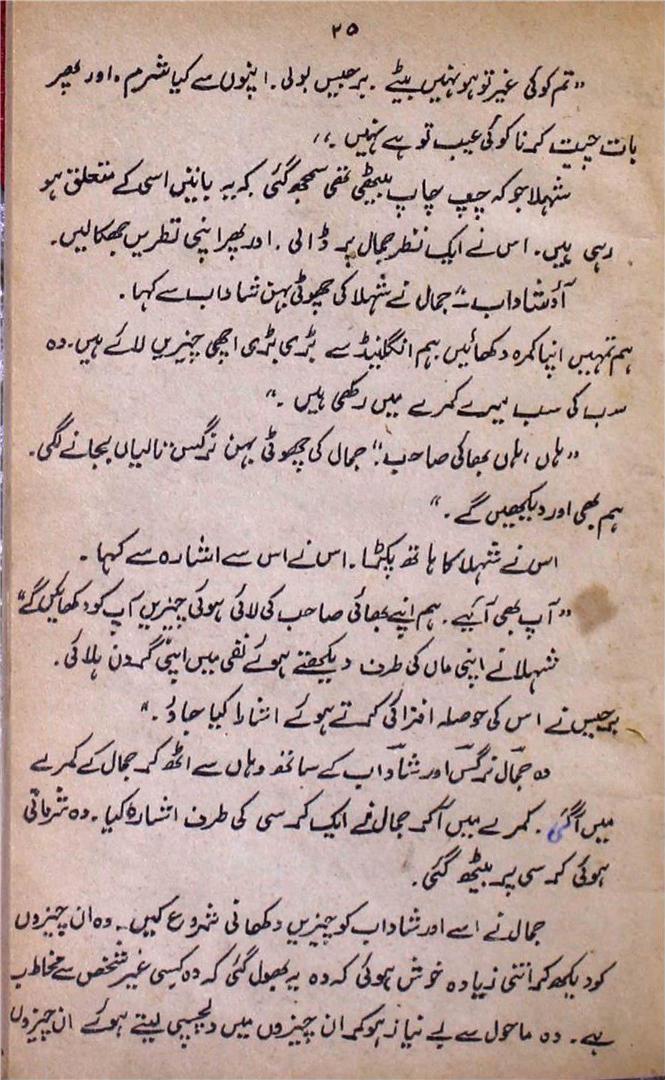 ۲۵
” تم کوئی غیر تو ہو نہیں بیٹے ۔ برجیس بولی ۔ اپنوں سے کیا شرم ۔ اور پھر
بات چیت کرنا کوئی عیب تو ہے نہیں ۔،،
شہلا جو کہ چپ چاپ بیٹھی تھی سمجھ گئی کہ یہ باتیں اسی کے متعلق ہو
رہی ہیں ۔ اس نے ایک نظر جمال پر ڈالی ۔ اور پھر اپنی نظریں جھکا لیں ۔
آؤ شاداب ۔“ جمال نے شہلا کی چھوٹی بہن شاداب سے کہا ۔
ہم تمہیں اپنا کمرہ دکھائیں ہم انگلینڈ سے بڑی بڑی اچھی چیزیں لائے ہیں ۔ وہ
سب کی سب میرے کمرے میں رکھی ہیں ۔“
” ہاں ، ہاں بھائی صاحب ۔“ جمال کی چھوٹی بہن نرگس تالیاں بجانے لگی ۔
ہم بھی اور دیکھیں گے ۔“
اس نے شہلا کا ہاتھ پکڑا ۔ اس نے اس سے اشارہ سے کہا ۔
” آپ بھی آئیے ۔ ہم اپنے بھائی صاحب کی لائی ہوئی چیزیں آپ کو دکھائیں گے “
شہلا نے اپنی ماں کی طرف دیکھتے ہوئے نفی میں اپنی گردن ہلائی ۔
برجیس نے اس کی حوصلہ افزائی کرتے ہوئے اشارا کیا جاؤ ۔“
وہ جمال نرگس اور شاداب کے ساتھ وہاں سے اٹھ کر جمال کے کمرے
میں آ گئی ۔ کمرے میں آ کر جمال نے ایک کرسی کی طرف اشارہ کیا ۔ وہ شرماتی
ہوئی کرسی پر بیٹھ گئی ۔
جمال نے اسے اور شاداب کو چیزیں دکھانی شروع کیں ۔ وہ ان چیزوں
کو دیکھ کر اتنی زیادہ خوش ہوئی کہ وہ یہ بھول گئی کہ وہ کسی غیر شخص سے مخاطب
ہے ۔ وہ ماحول سے بے نیاز ہو کر ان چیزوں میں دلچسپی لیتے ہوئے ان چیزوں